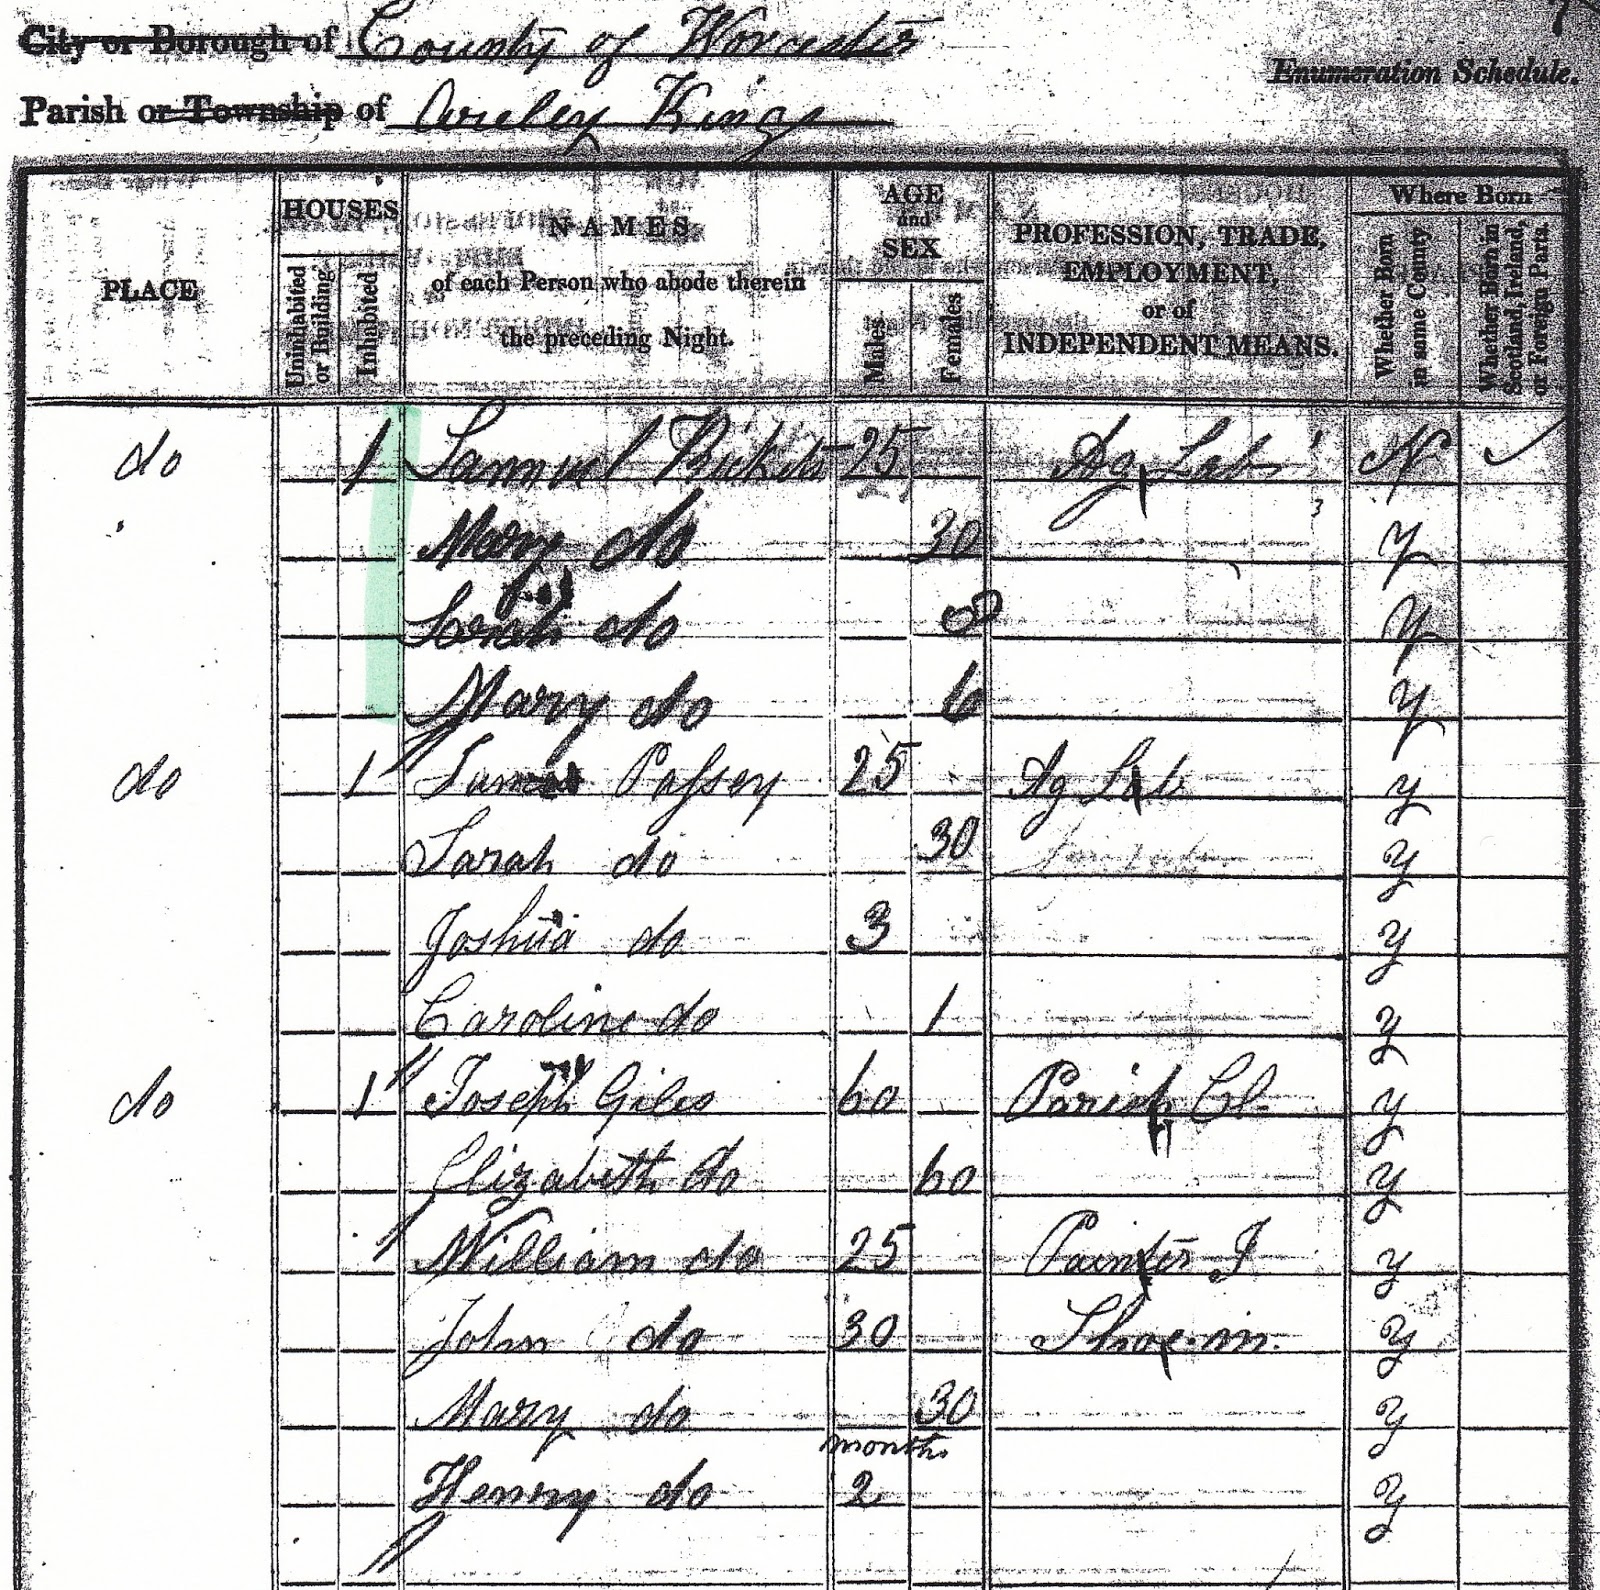 City or Borough of County of Worcester
Enumeration Schedule.
Parish or Township of Areley Kings
PLACE
HOUSES
Uninhabited or Building
Inhabited
NAMES
of each Person who abode therein
the preceding Night.
AGE
and
SEX
Males
Females
PROFESSION, TRADE,
EMPLOYMENT,
or of
INDEPENDENT MEANS.
Where Born
Whether Born in same County
Whether Born in Scotland, Ireland, or Foreign Parts.
do 1 Samuel 25 Ag Lab N
Mary do 30 y
Sarah do 8 y
Mary do 6 y
do 1 James Passey 25 Ag Lab y
Sarah do 30 y
Joshua do 3 y
Caroline do 1 y
do 1 Joseph Giles 60 Parish Cl. y
Elizabeth do 60 y
William do 25 Painter J y
John do 30 Shoe m. y
Mary do 30 y
months
Henry do 2 y